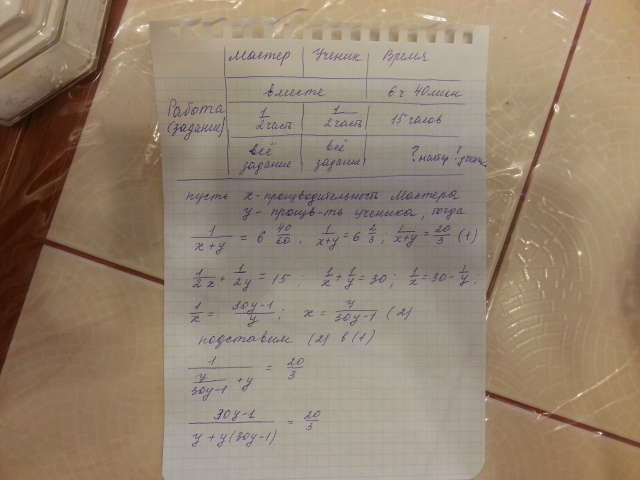 Мастер Ученик Время
вместе 6ч 40мин
Работа (задание) 1/2 част 1/2 част 15 часов
всё задание всё задание ? мастер ? ученик
пусть x - производительность Мастера
y - произв-ть ученика, тогда
1/(x+y) = 6 40/60, 1/(x+y) = 6 2/3, 1/(x+y) = 20/3 (1)
1/2x + 1/2y = 15. 1/x + 1/y = 30; 1/x = 30 - 1/y;
1/x = (30y-1)/y; x = y/(30y-1) (2)
подставим (2) в (1)
1/(y/(30y-1) + y) = 20/3
(30y-1)/(y+y(30y-1)) = 20/3